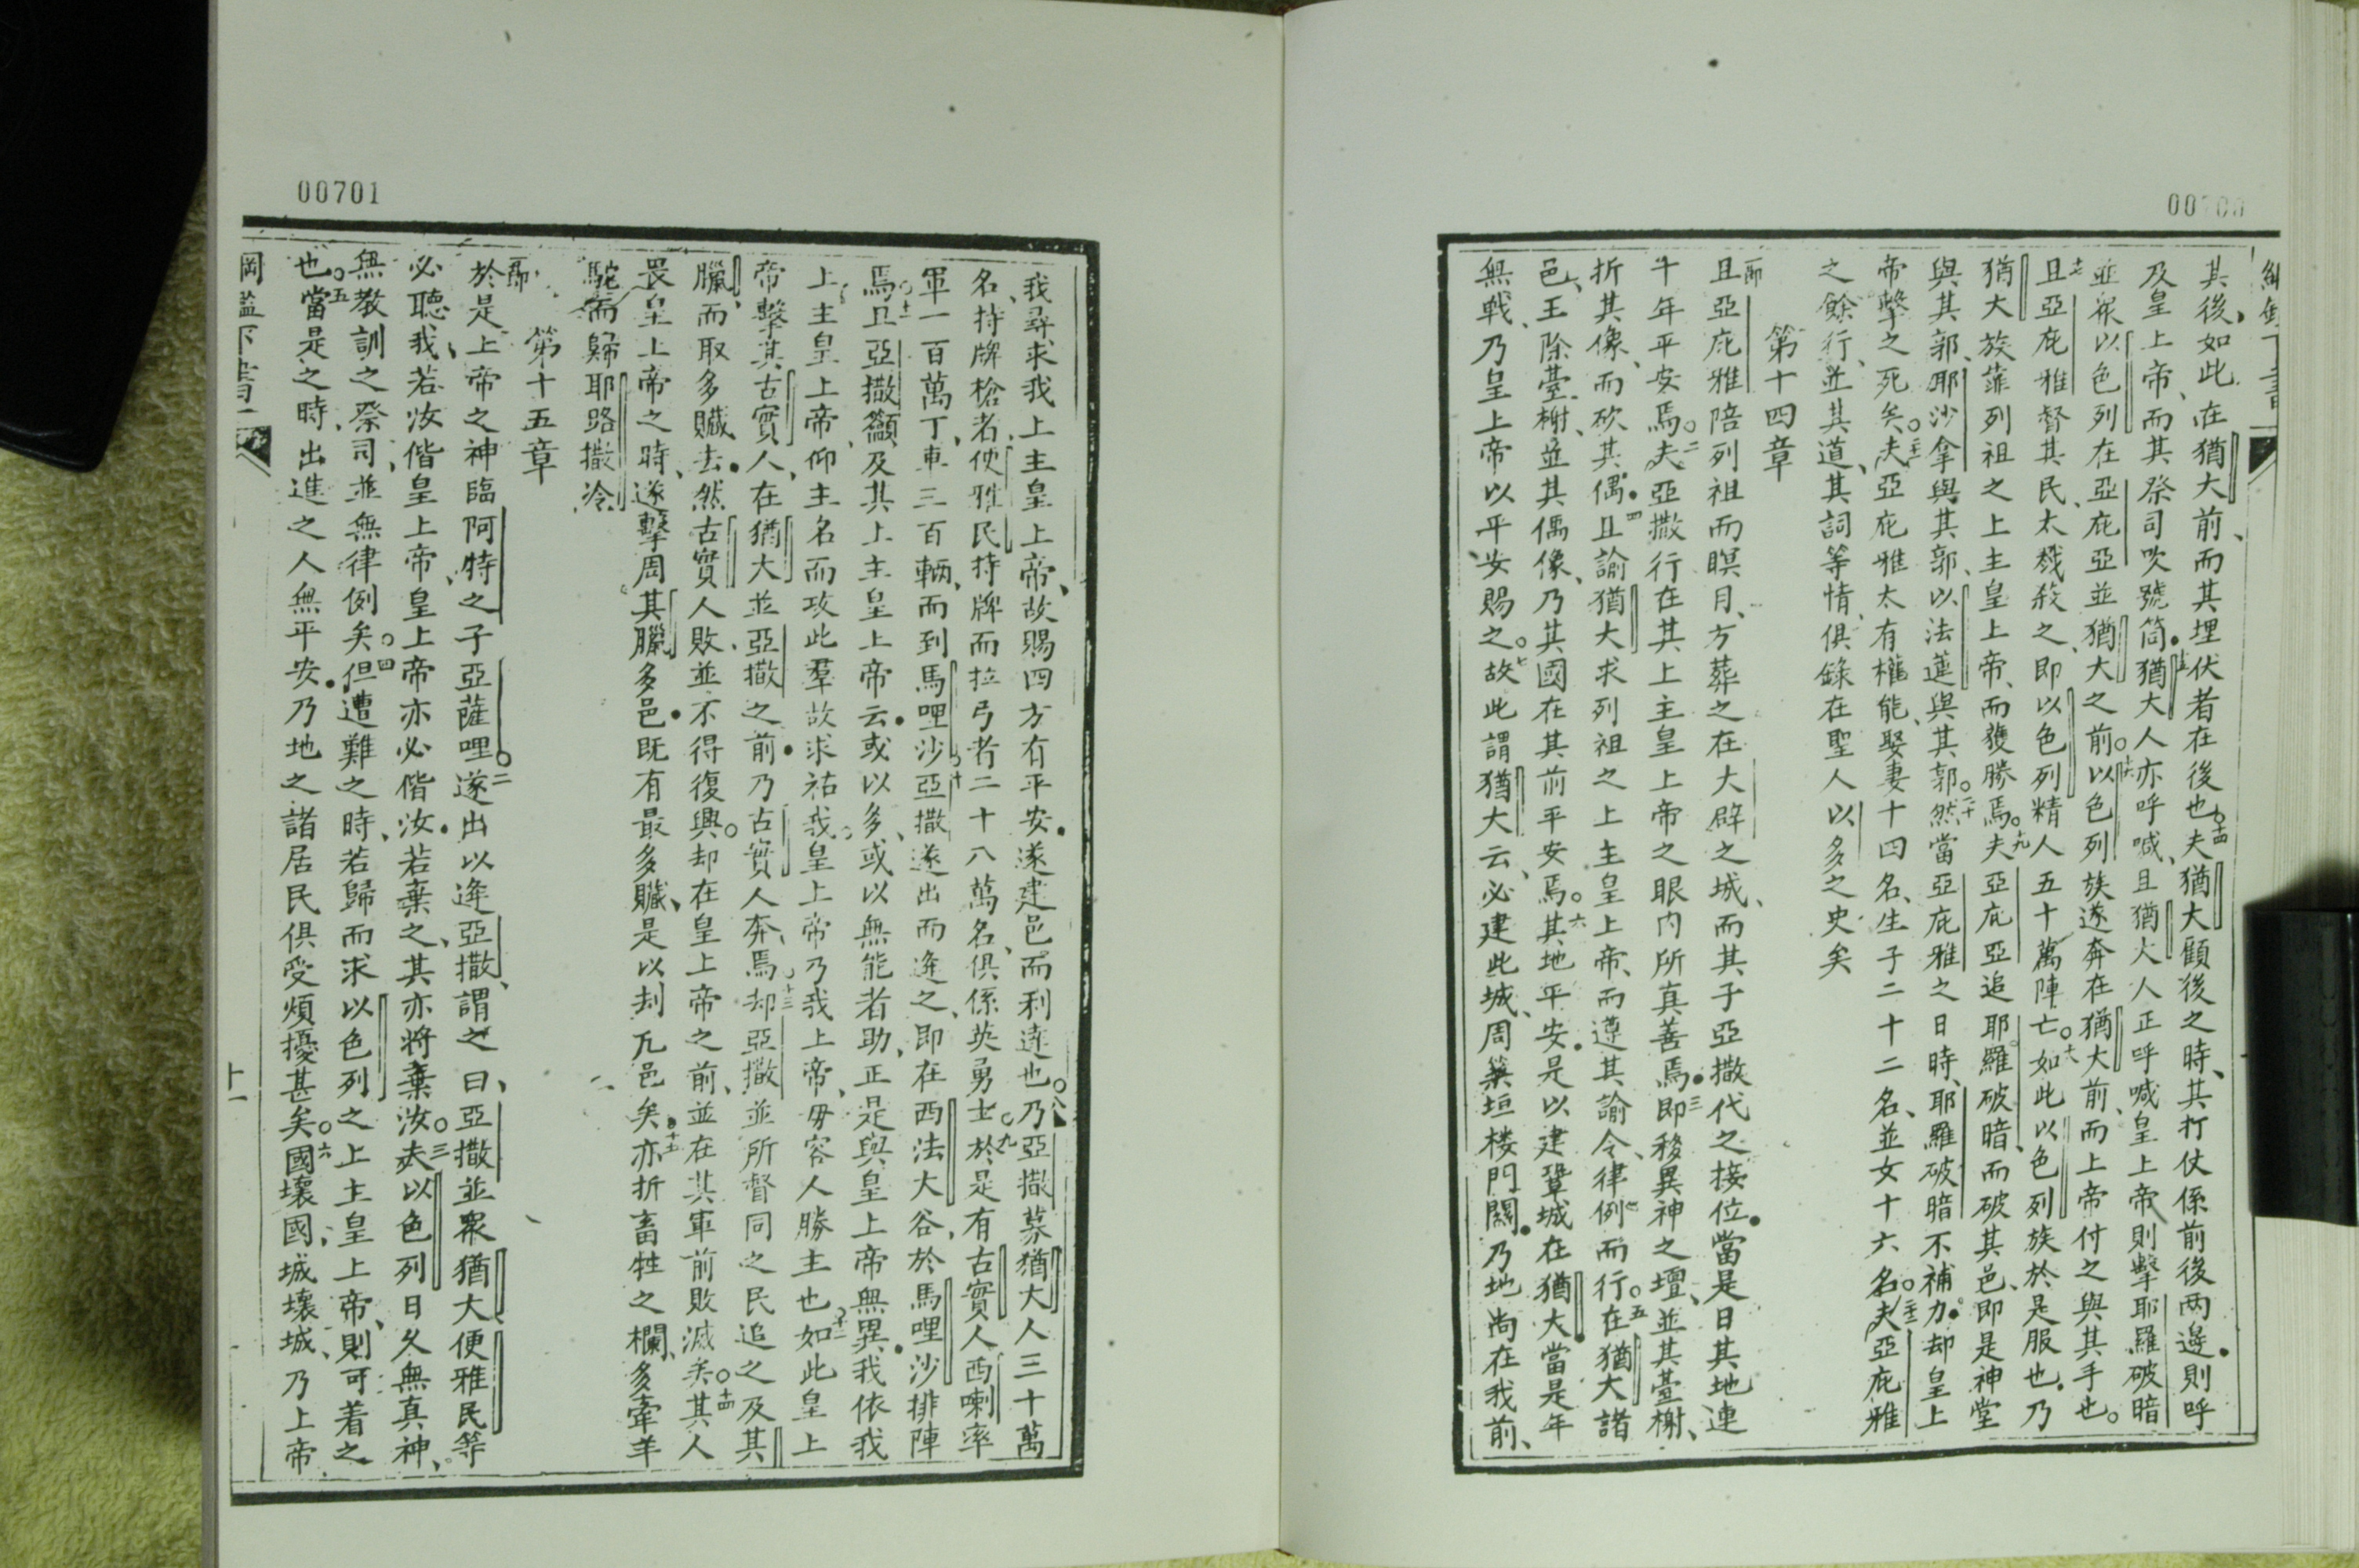 00700
其後如此、在猶大前、而其埋伏者在後也○十四夫猶大顧後之時、其打仗係前後兩邊則呼
及皇上帝、而其祭司吹號筒猶大人亦呼喊、且猶大人正呼喊皇上帝則擊耶羅破暗
並眾以色列在亞庇亞並猶大之前○十六以色列族遂奔在猶大前、而上帝付之與其手也○
十七且亞庇雅督其民、太戮殺之、即以色列精人五十萬陣亡○十八如此以色列族於是服也、乃
猶大族靠列祖之上主皇上帝、而獲勝焉○十九夫亞庇亞追耶羅破暗、而破其邑、即是神堂
與其郭、耶沙拿與其郭、以法蓮與其郭○二十然當亞庇雅之日時、耶羅破暗不補力却皇上
帝擊之死矣○夫亞庇雅太有權能、娶妻十四名、生子二十二名、並女十六名○夫亞庇雅
之餘行、並其道、其詞等情、俱錄在聖人以多之史矣
第十四章
一節且亞庇雅陪列祖而瞑目、方葬之在大辟之城、而其子亞撒代之接位當是日其地連
十年平安焉○二夫亞撒行在其上主皇上帝之眼內所真善焉三即移異神之壇、並其臺榭、
折其像、而砍其偶四且諭猶大求列祖之上主皇上帝、而遵其諭令、律例而行○五在猶大諸
邑、王除臺榭、並其偶像、乃其國在其前平安焉○六其地平安是以建鞏城在猶大當是年
無戰、乃皇上帝以平安賜之○七故此謂猶大云、必建此城、周築垣楼門關乃地尚在我前、
00701
我尋求我上主皇上帝、故賜四方有平安遂建邑而利達也○八乃亞撒募猶大人三十萬
名、持牌槍者、使雅民持牌而拉弓者二十八萬名、俱係英勇士○九於是有古實人西喇率
軍一百萬丁、車三百輛、而到馬哩沙○十亞撒遂出而逄之、即在西法大谷、於馬哩沙排陣
焉○十一且亞撒籲及其上主皇上帝云或以多、或以無能者助、正是與皇上帝無異我依我
上主皇上帝、仰主名而攻此羣故求祐我○皇上帝乃我上帝、毋容人勝主也○十二如此皇上
帝擊其古實人、在猶大並亞撒之前乃古實人奔焉○十三却亞撒並所督同之民追之及其
臘、而取多贓去然古實人敗並不得復興○却在皇上帝之前、並在其軍前敗滅矣○十四其人
畏皇上帝之時、遂擊周其臘多邑既有最多贓、是以刦兀邑矣十五亦折畜牲之欄、多牽羊
駝而歸耶路撒冷
第十五章
一節於是上帝之神臨阿特之子亞薩哩○二遂出以逄亞撒、謂之曰、亞撒並眾猶大便雅民等
必聽我、若汝偕皇上帝、皇上帝亦必偕汝若棄之、其亦將棄汝○三夫以色列日久無真神、
無教訓之祭司、並無律例矣○四但遭難之時、若歸而求以色列之上主皇上帝、則可着之
也○五當是之時、出進之人無平安乃地之諸居民俱受煩擾甚矣○六國壞國、城壞城、乃上帝
十一